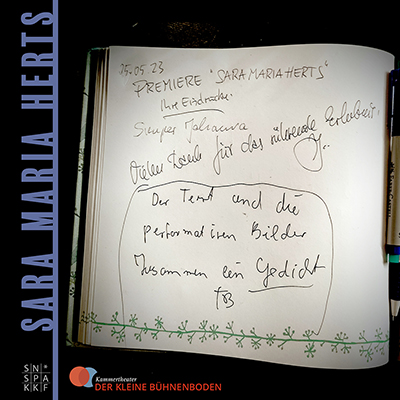 SARA MARIA HERTS
25.05.23
PREMIERE "SARA MARIA HERTS"
Ihre Eindrücke.
Vielen Dank für das rührende Erlebnis.
Der Text und die
performativen Bilder
Zusammen ein Gedicht
SN*
SPA
KKF
Kammertheater
DER KLEINE BÜHNENBODEN